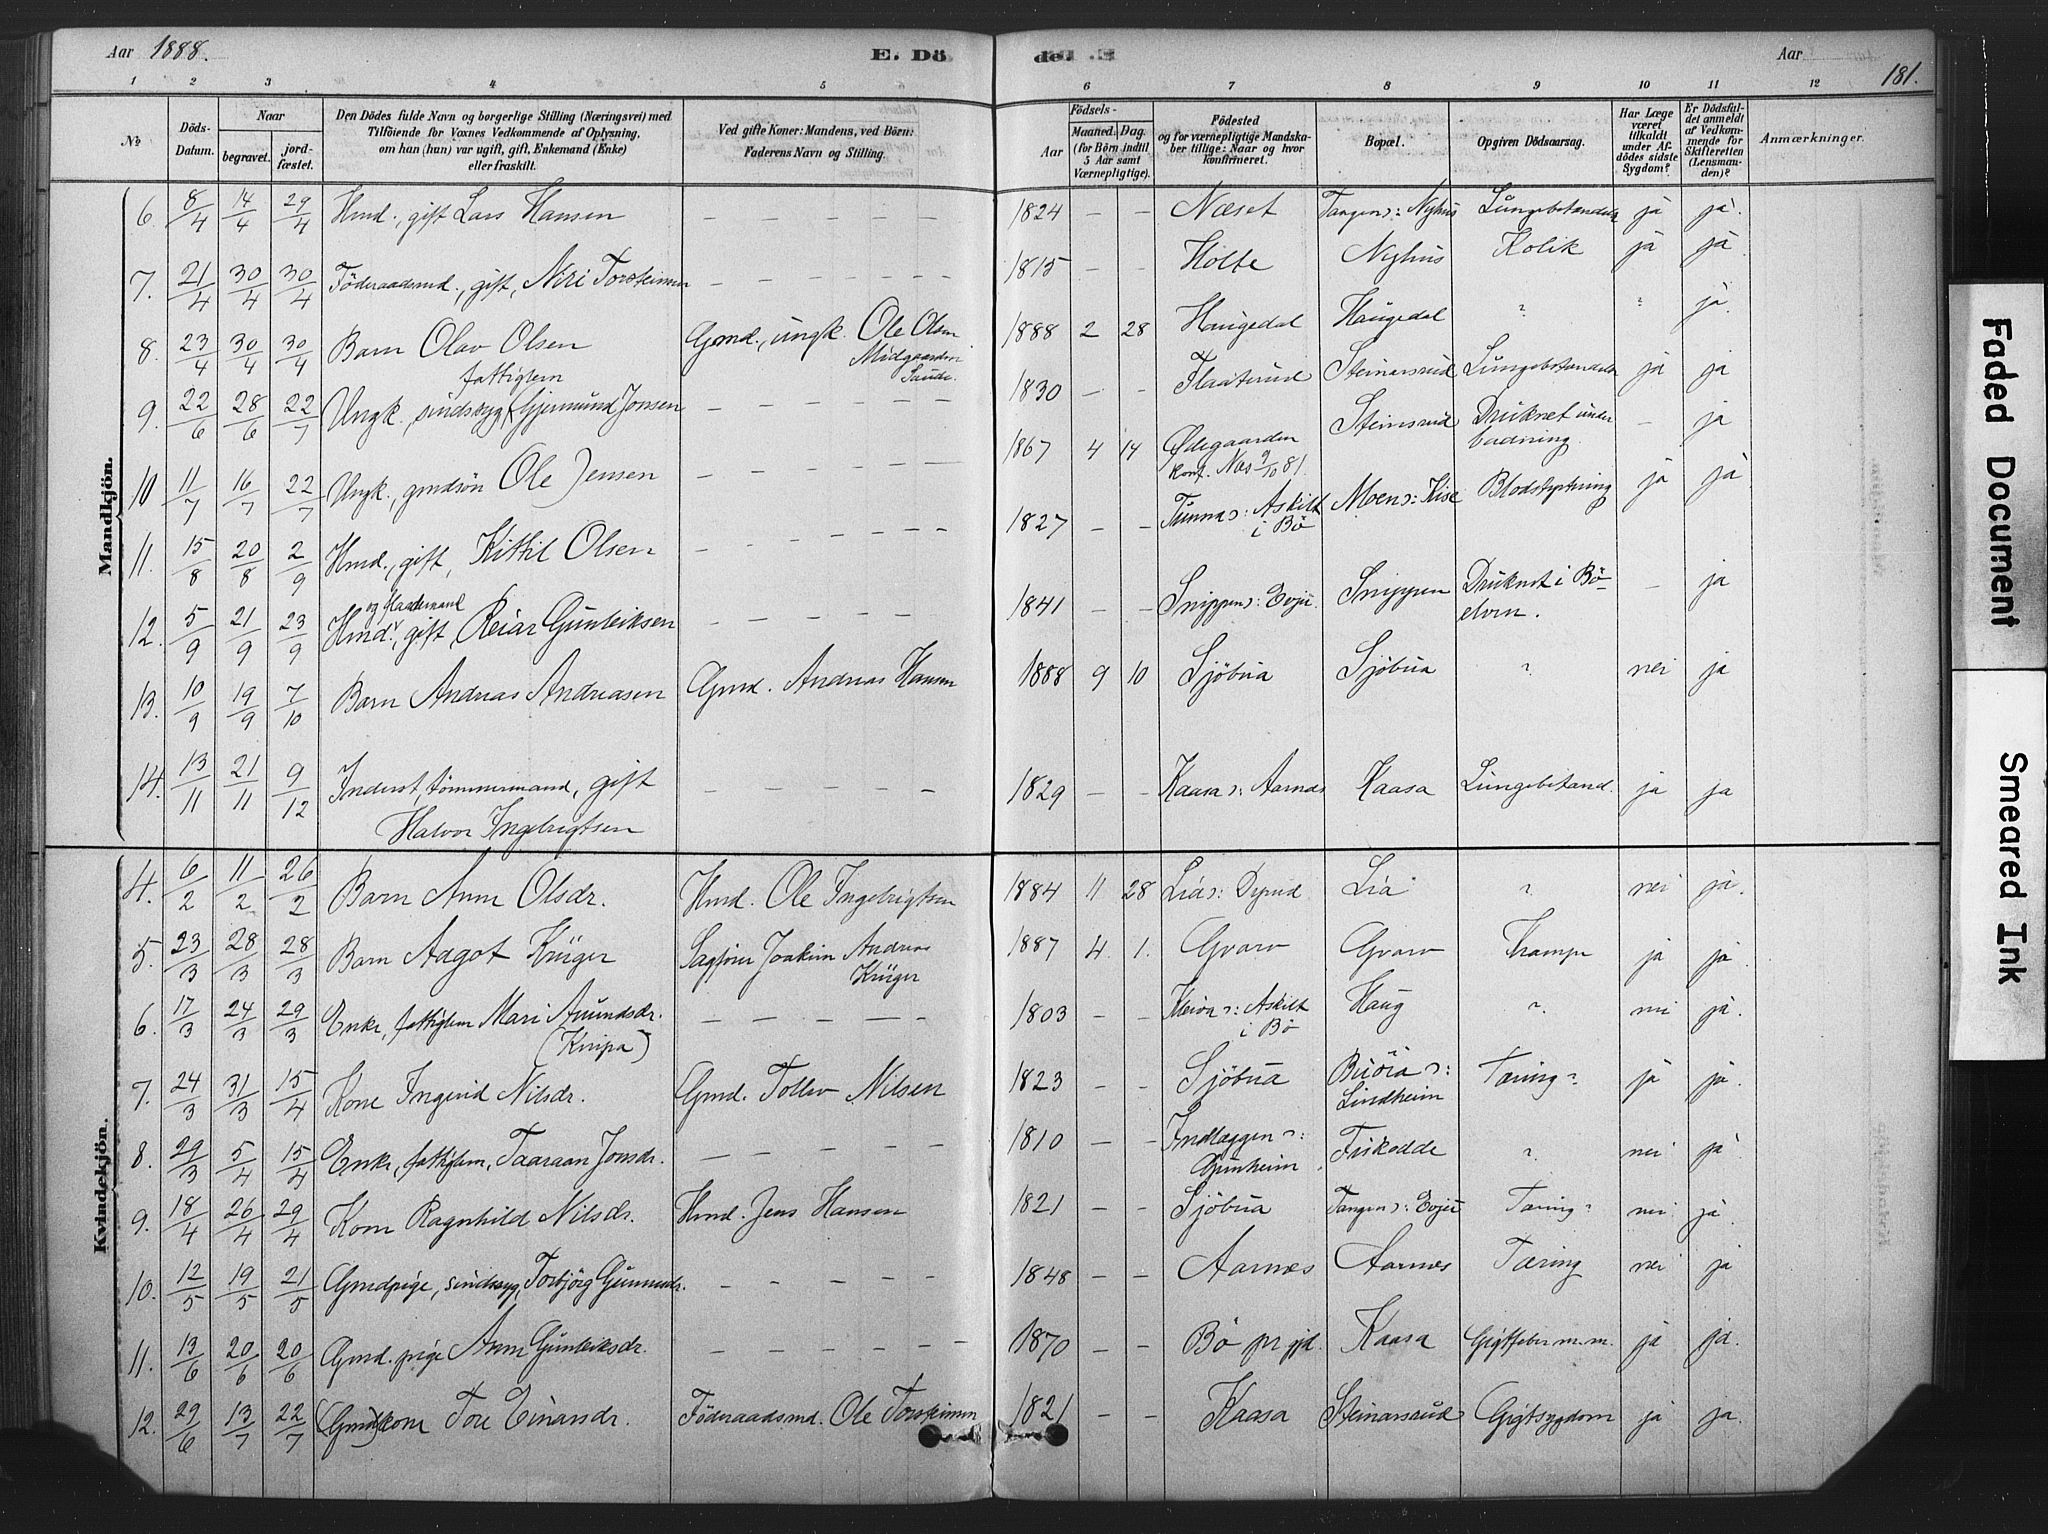 Aar 1888. E. Dö
de. .E Aar
181.
1 2 3 4 5 6
6 7 8 9 10 11 12
No Döds-Datum. Naar begravet. jordfæstet. Den Dödes fulde Navn og borgerlige Stilling (Næringsvei) med Tilföiende for Voxnes Vedkommende af Oplysning, om han (hun) var ugift, gift, Enkemand (Enke) eller fraskilt. Ved gifte Koner: Mandens, ved Börn: Faderens Navn og Stilling.
Födsels- Aar Maaned. Dag. (for Börn indtil 5 Aar samt Værnepligtige). Födested og for værnepligtige Mandskaber tillige: Naar og hvor konfirmeret. Bopæl. Opgiven Dödsaarsag. Har Læge været tilkaldt under Afdödes sidste Sygdom? Er Dödsfaldet anmeldt af Vedkommende for Skifteretten (Lensmanden)? Anmærkninger.
Mandkjön.
6 8/4 14/4 29/4 Hmd., gift Lars Hansen — — — — — 1824 — — Næset Tangen ɔ: Nyhus Lungebetændelse ja ja.
7. 21/4 30/4 30/4 Föderaadsmd., gift, Niri Torsteinsen — — — — — 1815 — — Holte Nyhus Kolik ja ja
8. 23/4 30/4 30/4 Barn Olav Olsen Gmd., ungk. Ole Olsen Midgaarden Saude. 1888 2 28 Haugedal Haugedal ? " ja.
9. 22/6 28/6 22/7 Ungk., sindssyg, fattiglem Gjermund Jonsen — — — — — 1830 — — Flaaterud Steinarsrud Lungebetændelse ja ja
10 11/7 16/7 22/7 Ungk., gmdsön Ole Jensen — — — — — 1867 4 14 Ødegaarden konf. Næs 9/10 81. Steinsrud Druknet under badning — ja
11. 15/8 20/8 2/9 Hmd., gift, Kittil Olsen — — — — — 1827 — — Tunna ɔ: Askilt i Bö Moen ɔ: Kise Blodstyrtning ja ja
12. 5/9 21/9 23/9 Hmd. og flaademand, gift, Reiar Gunleiksen — — — — — 1841 — — Snippen ɔ: Evju. Snippen Druknet i Bö-elven. — ja
13. 10/9 19/9 7/10 Barn Andreas Andreasen Gmd. Andreas Hansen 1888 9 10 Sjöbua Sjöbua ? nei ja
14. 13/11 21/11 9/12 Inderst, tömmermand, gift Halvor Ingebrigtsen — — — — — 1829 — — Kaasa ɔ: Aarnæs Kaasa Lungebetænd. ja ja
Kvindekjön.
4. 6/2 11/2 26/2 Barn Anne Olsdr. Hmd. Ole Ingebrigtsen 1884 11 28 Lia ɔ: Lia ? nei ja.
5. 23/3 28/3 28/3 Barn Aagot Krüger Sagförer Joakim Andreas Krüger 1887 4. 1. Gvarv Gvarv Krampe ja ja.
6. 17/3 24/3 29/3 Enke, fattiglem Mari Amundsdr. — — — — — 1803 — — Askilt i Bö Haug ? nei ja.
7. 24/3 31/3 15/4 Kone Ingerid Nilsdr. Gmd. Tollev Nilsen 1823 — — Sjöbua ɔ: Lindheim Tæring? ja ja.
8. 29/3 5/4 15/4 Enke, fattiglem, Taaraan Jonsdr. — — — — — 1810 — — Indlæggen ɔ: Gunheim Fiskodde ? nei ja
9. 18/4 26/4 29/4 Kone Ragnhild Nilsdr. Hmd. Jens Hansen 1821 — — Sjöbua Tangen ɔ: Evju Tæring? nei ja
10. 12/5 19/5 21/5 Gmdpige, sindssyg, Torbjörg Gunnusdr. — — — — — 1848 — — Aarnæs Aarnæs Tæring nei ja
11. 13/6 20/6 20/6 Gmd. pige Anne Gunleiksdr. — — — — — 1870 — — Bö pr gjd. Kaasa Gigtfeber m.m. ja ja.
12. 29/6 13/7 22/7 (Gmd)kone Tore Einarsdr. Föderaadsmd. Ole Torsteinsen 1821 — — Kaasa Steinarsrud Gigtsygdom ja ja.
Faded Document
Smeared Ink